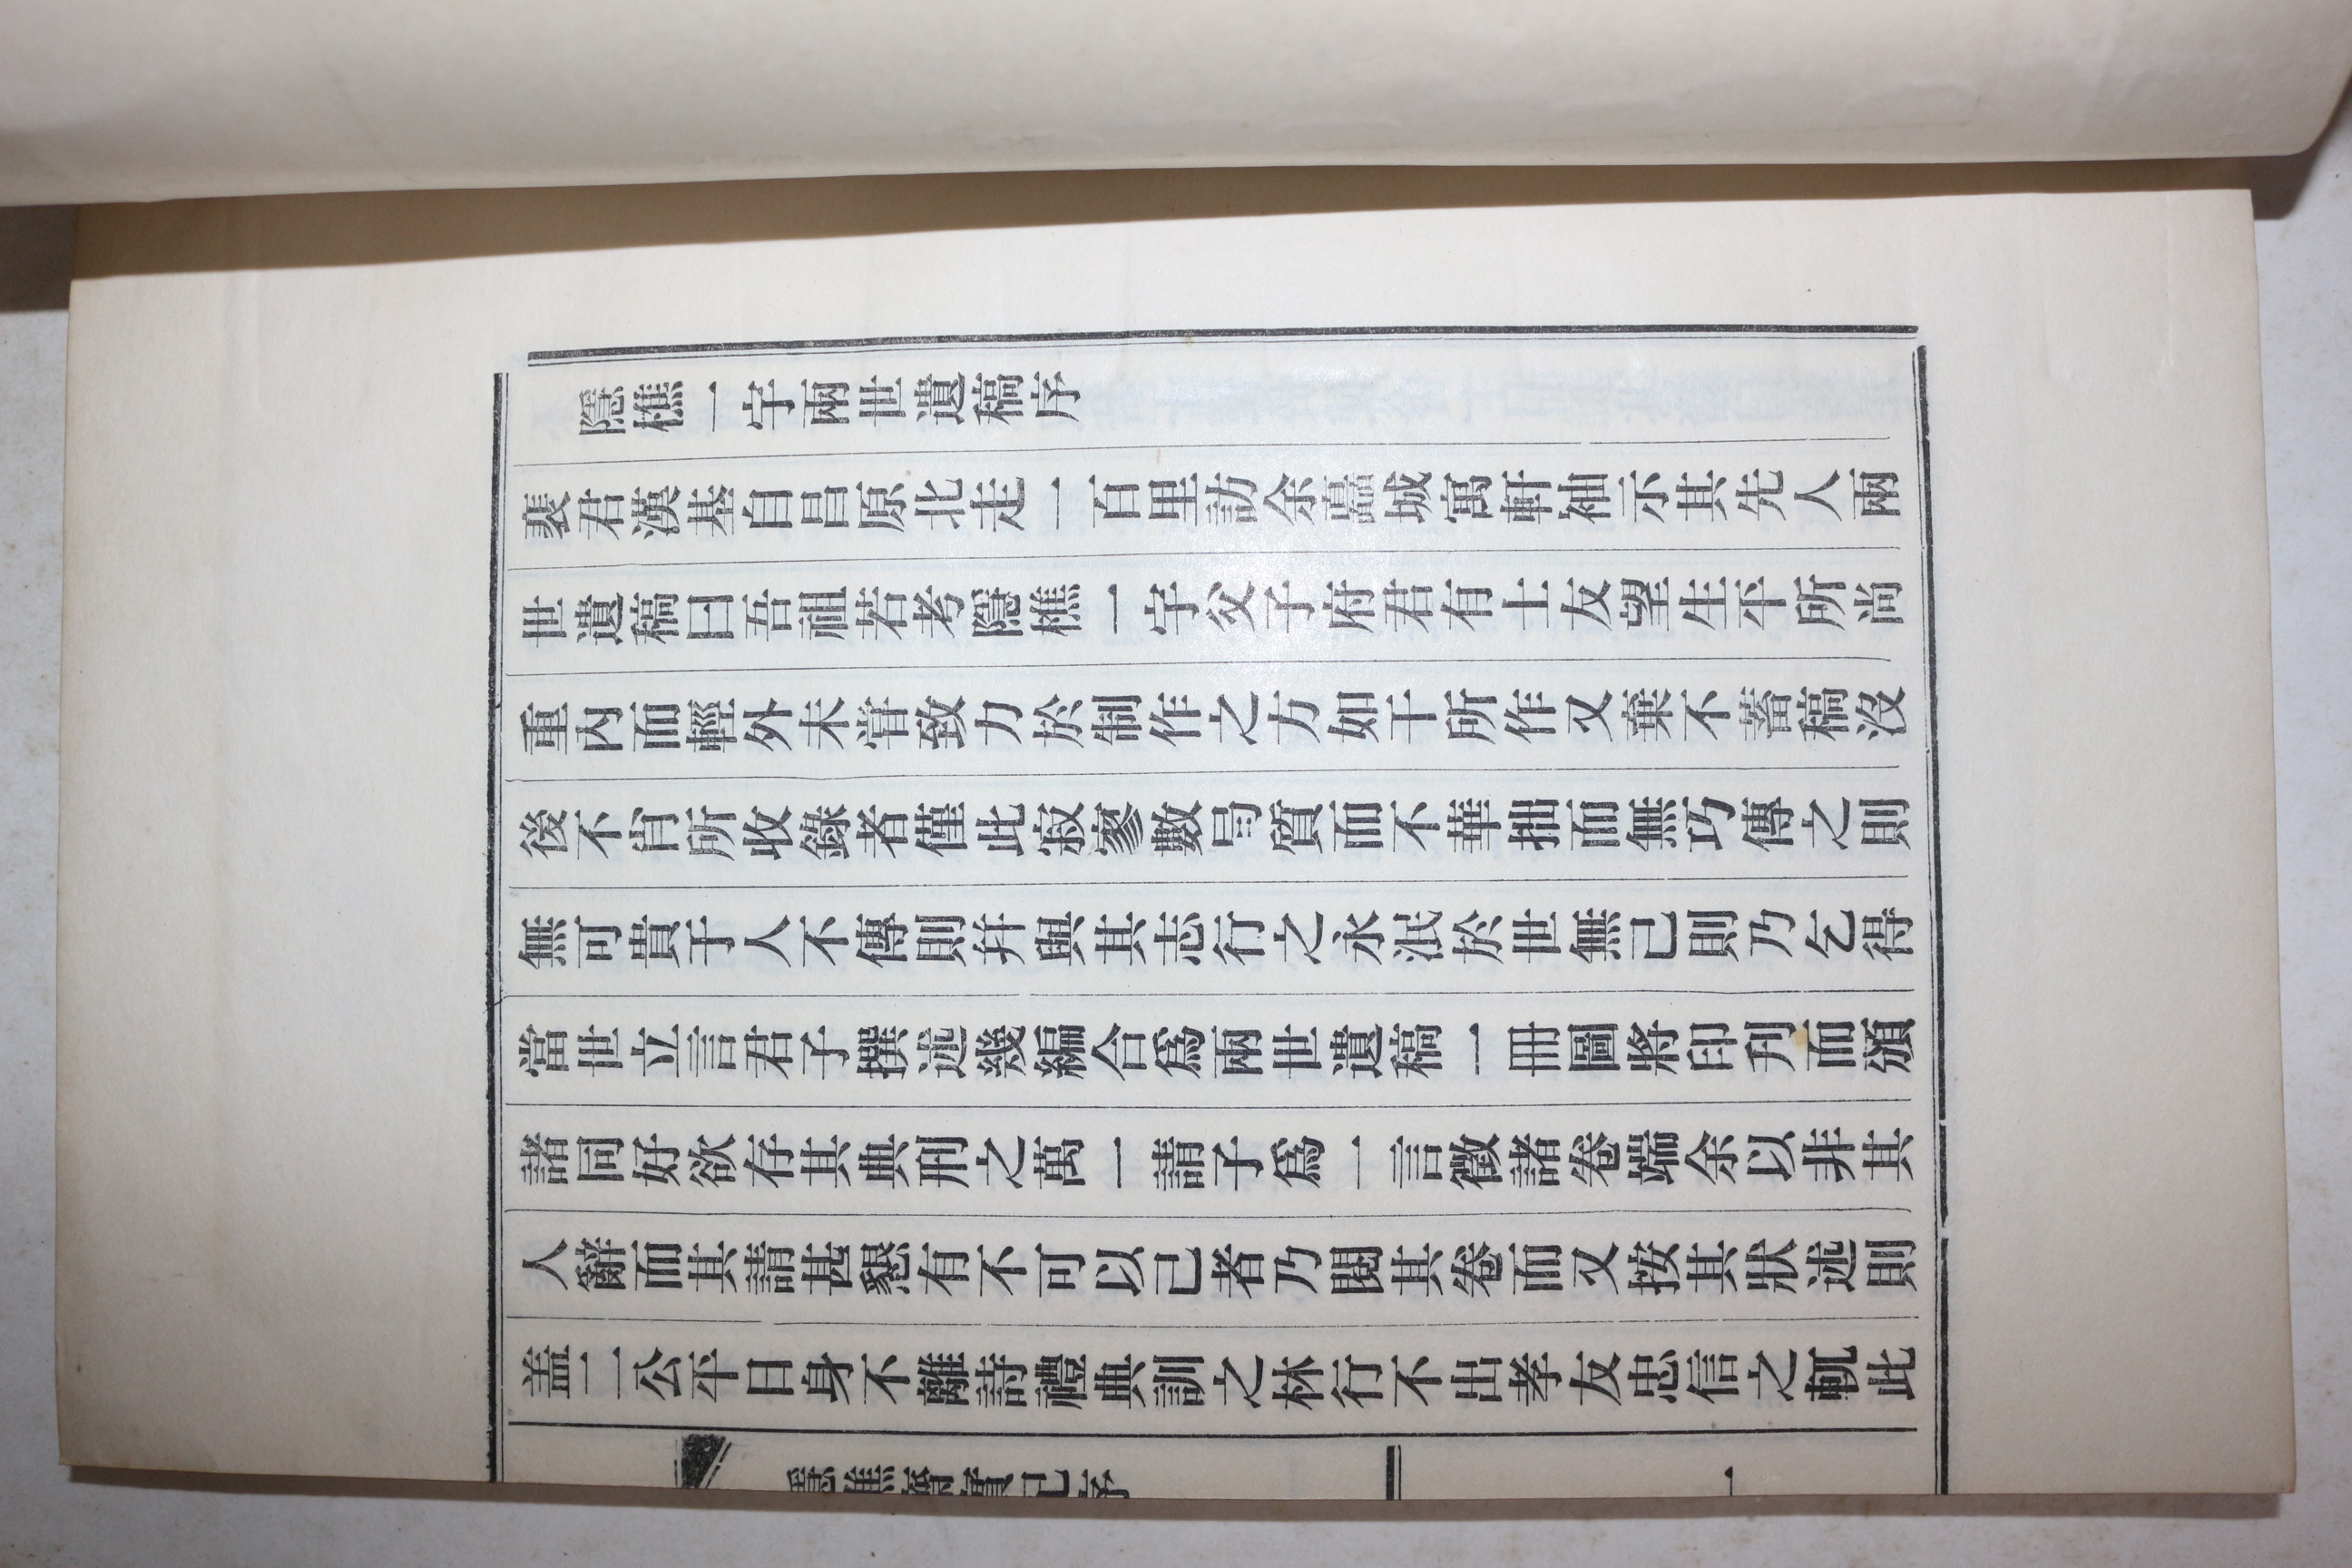 隱樵一字兩世遺稿序
裴君漢基自昌原北走一百里訪余嚞城寓軒袖示其先人兩
世遺稿曰吾祖若考隱樵一字父子府君有士友望生平所尙
重內而輕外未甞致力於制作之方如干所作又棄不蓄稿沒
後不肖所收錄者僅此寂寥數号質而不華拙而無巧傳之則
無可貴于人不傳則幷與其志行之永泯於世無已則乃乞得
當世立言君子撰述幾編合爲兩世遺稿一冊圖將印刋而頒
諸同好欲存其典刑之萬一請子爲一言徵諸卷端余以非其
人辭而其請甚懇有不可以已者乃閱其卷而又按其狀述則
盖二公平日身不離詩禮典訓之林行不出孝友忠信之軏此